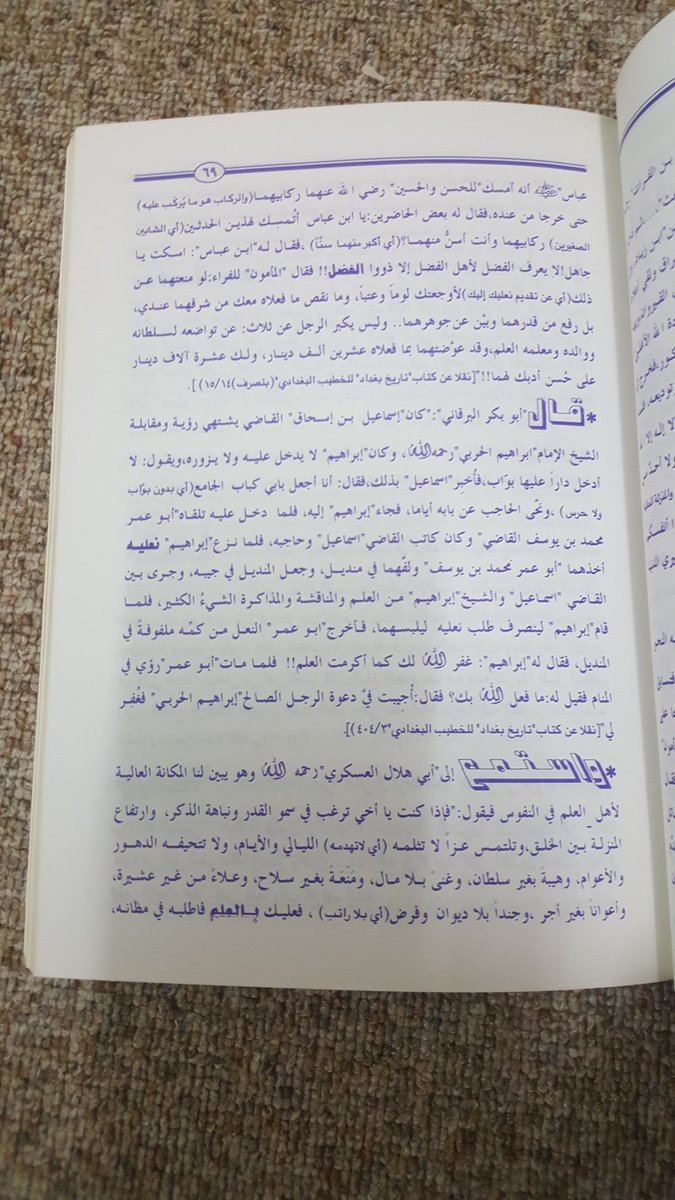 ٦٩
عباس"ﷺ أنه أمسك"للحسن والحسين" رضي الله عنهما ركابيهما(والركاب هو ما يُركَب عليه)
حتى خرجا من عنده،فقال له بعض الحاضرين:يا ابن عباس أتُمسك لهذين الحدثين(أي الشابين
الصغيرين) ركابيهما وأنت أسنُّ منهما؟(أي أكبر منهما سنًّا) ،فقال لـه"ابن عباس": اسكت يـا
جاهل!لا يعرف الفضل لأهل الفضل إلا ذووا الفضل!! فقال "المأمون" للفراء:لو منعتهما عن
ذلك(أي عن تقديم نعليك إليك)لأوجعتك لوماً وعتباً، وما نقص ما فعلاه معك من شرفهما عندي،
بل رفع من قدرهما وبيَّن عن جوهرهما.. وليس يكبر الرجل عن ثلاث: عن تواضعه لسـلطانه
ووالده ومعلمه العلم،وقد عوَّضتهما بما فعلاه عشرين ألـف دينار، ولـك عشـرة آلاف دينار
على حُسن أدبك لهما!!"[نقلا عن كتاب"تاريخ بغداد" للخطيب البغدادي"(بتصرف)١٥/١٤)].
*قال"أبو بكر البرقاني":"كان"إسماعيل بـن إسـحاق" القـاضي يشـتهي رؤيـة ومقابلـة
الشيخ الإمام"ابراهيم الحربي"رحمه الله، وكان"إبراهيم" لا يدخل عليـه ولا يـزوره،ويقـول: لا
أدخل داراً عليها بوّاب،فأُخبِر"اسماعيل" بذلك،فقال: أنا أجعل بابي كباب الجامع(أي بدون بوّاب
ولا حرس) ،ونحَّى الحاجب عن بابه أياما، فجاء"إبراهيم" إليه، فلما دخل عليـه تلقـاه"أبـو عمـر
محمد بن يوسف القاضي" وكان كاتب القاضي"اسماعيل" وحاجبه، فلما نـزع"إبراهيـم" نعليـه
أخذهما "أبو عمر محمد بن يوسف" ولفّهما في منديـل، وجعل المنديل في جيبه، وجـرى بـين
القـاضي "اسمـاعيل" والشَّـيخ"إبراهيـم" مـن العلـم والمناقشة والمذاكـرة الشيءُ الكثـير، فلمـا
قام"إبراهيم" لينصرف طلب نعليه ليلبسـهما، فـأخرج"ابـو عمـر" النعل مـن كمِّـه ملفوفـةً في
المنديل، فقال له"إبراهيم": غفر الله لك كما أكرمت العلم!! فلمـا مـات"أبـو عمـر"رؤي في
المنام فقيل له:ما فعل الله بك؟ فقال:أُجيبت فيَّ دعوة الرجـل الصـالح"إبراهيـم الحربي" فغُفِـر
لي"[نقلا عن كتاب"تاريخ بغداد" للخطيب البغدادي"٤٠٤/٣)].
*واستمع إلى"أبي هلال العسكري"رحمه الله وهو يبين لنا المكانة العالية
لأهل العلم في النفوس فيقول:"فإذا كنت يا أخي ترغب في سمو القدر ونباهة الذكر، وارتفاع
المنزلـة بـين الخلـق،وتلتمـس عـزاً لا تثلمـه (أي لاتهدمه) الليالي والأيام، ولا تتحيفـه الدهـور
والأعوام، وهيبة بغير سلطان، وغنىً بـلا مـال، ومَنَعَـةً بغير سـلاح، وعـلاءً مـن غير عشيرة،
وأعواناً بغير أجر ،وجنداً بلا ديوان وفرض(أي بلا راتب) ، فعليـك بـالعلم فاطلبه في مظانـه،